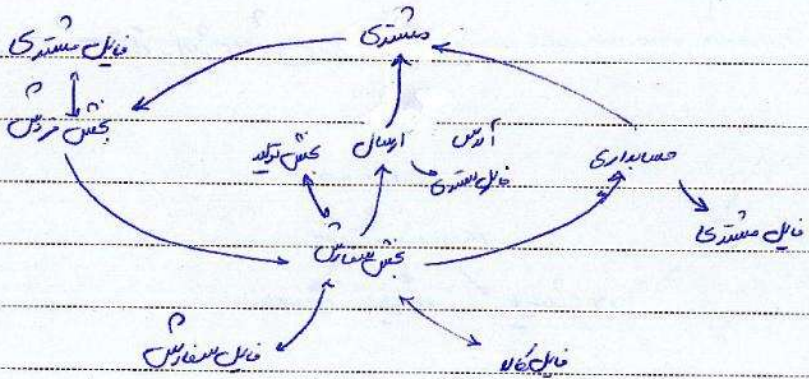 مشتری
فایل مشتری
بخش فروش
بخش تولید
ارسال
آدرس
فایل مشتری
حسابداری
فایل مشتری
بخش سفارش
فایل سفارش
فایل کالا